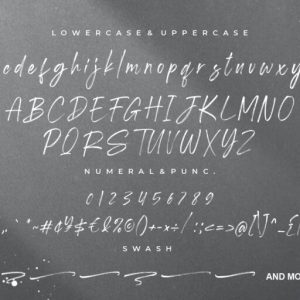 LOWERCASE & UPPERCASE
cdefghijklmnopqrstuvwxy
ABCDEFGHIJKLMNO
PQRSTUVWXYZ
NUMERAL & PUNC.
0123456789
*#¢¥$€&%()+-×÷/:;<=>@[\]^_{
SWASH
AND MO